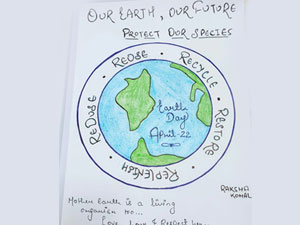 OUR EARTH, OUR FUTURE
PROTECT OUR SPECIES
REDUSE · REUSE · RECYCLE · RESTORE · REPLENISH ·
Earth
Day
April-22
RAKSHA
KOMAL
Mother Earth is a living
organism too...
Love, Love & Respect